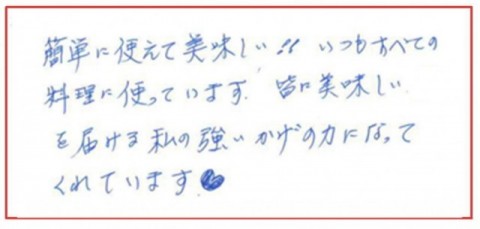 簡単に使えて美味しい!! いつもすべての
料理に使っています。皆に美味しい
を届ける私の強いかげの力になって
くれています♥